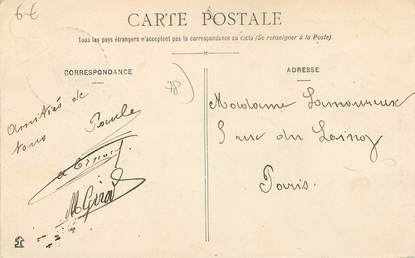 6 €
CARTE POSTALE
Tous les pays étrangers n'acceptent pas la correspondance au recto (Se renseigner à la Poste)
CORRESPONDANCE
ADRESSE
78)
Amitiés de
tous Paule
Madame Lamoureux
5 rue du
Paris.